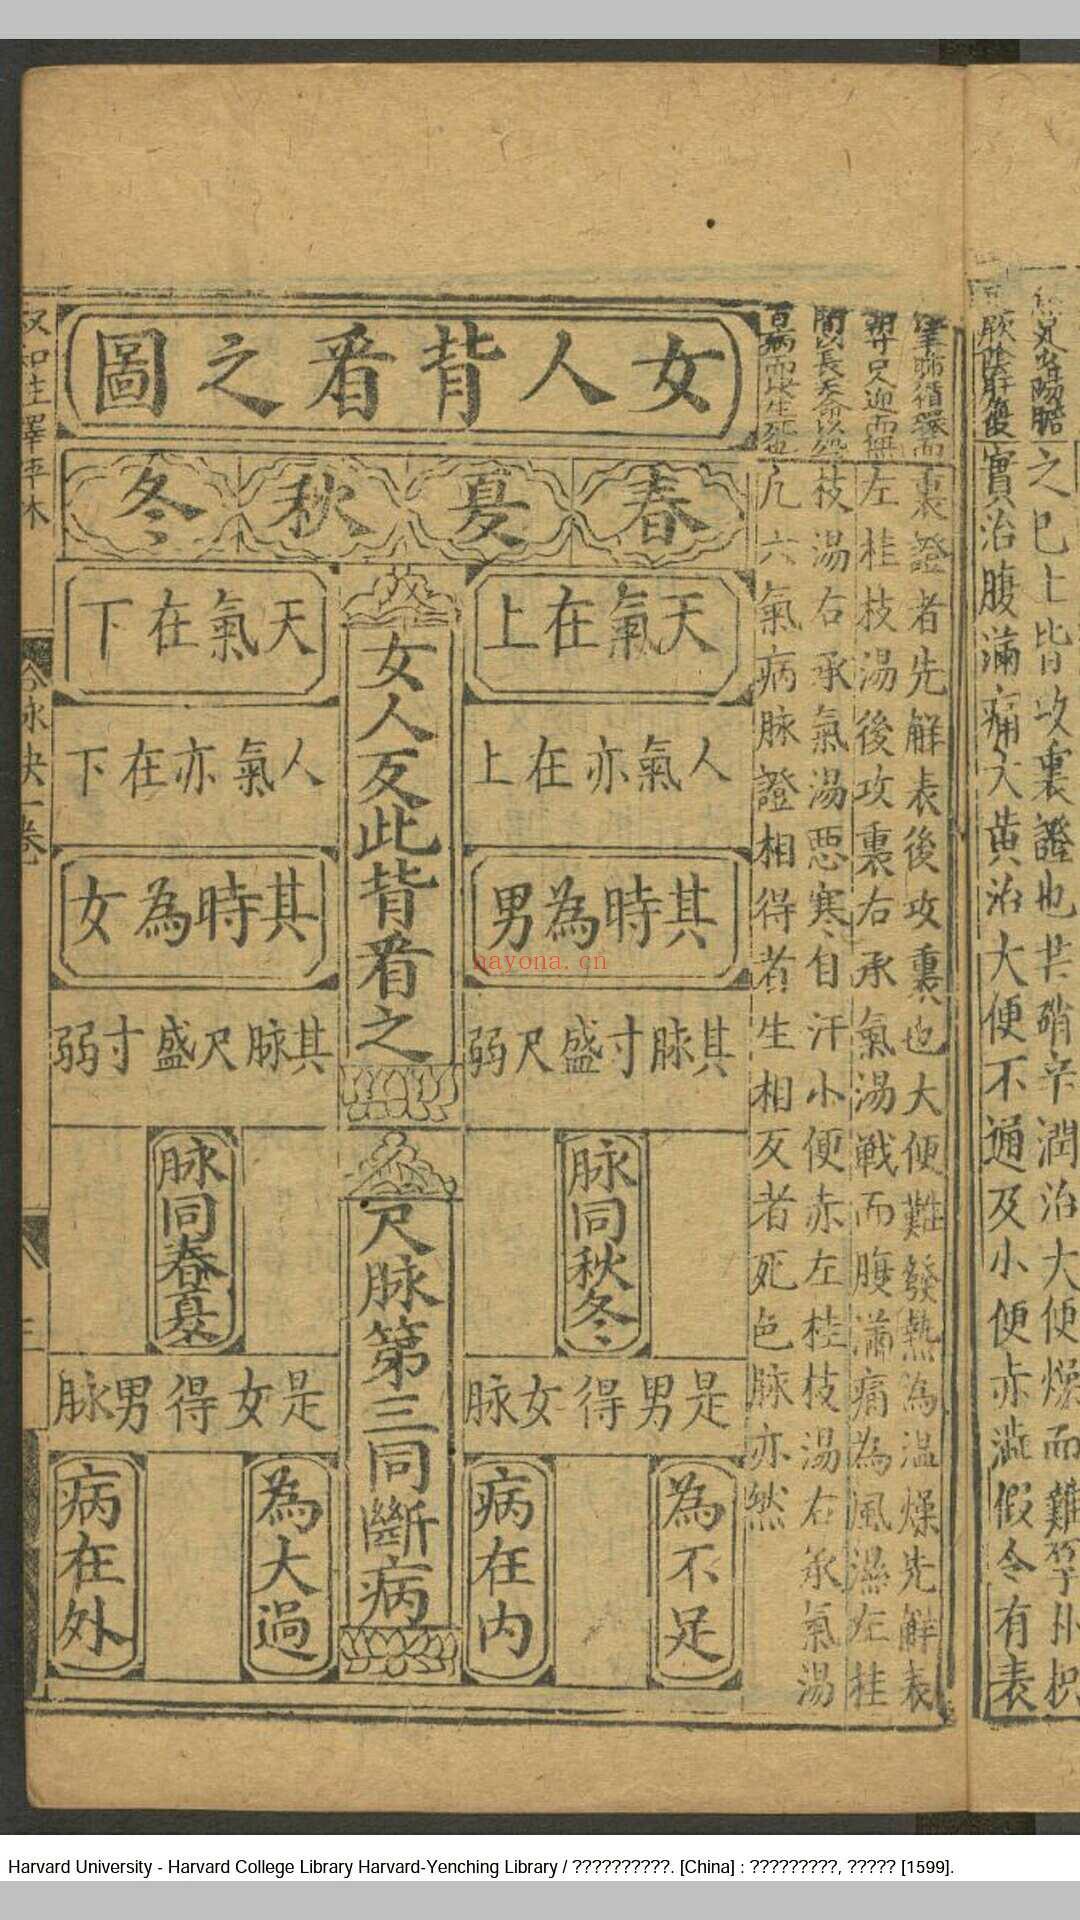 之已上皆攻裏證也芒硝辛潤治大便燥而難
實治腹滿痛大黃治大便不通及小便赤澁假令有表
裏證者先解表後攻裏也大便難發熱為温燥先解表
左桂枝湯後攻裏右承氣湯戰而腹滿痛為風濕左桂
枝湯右承氣湯惡寒自汗小便赤左桂枝湯右承氣湯
凡六氣病脉證相得者生相反者死色脉亦然
女人背看之圖
春夏秋冬
天氣在上
人氣亦在上
其時為男
其脉寸盛尺弱
脉同秋冬
是男得女脉
為不足
病在内
女人反此背看之
尺脉第三同斷病
天氣在下
人氣亦在下
其時為女
其脉尺盛寸弱
脉同春夏
是女得男脉
為大過
病在外
nayona.cn
Harvard University - Harvard College Library Harvard-Yenching Library / ??????????. [China] : ?????????, ????? [1599].